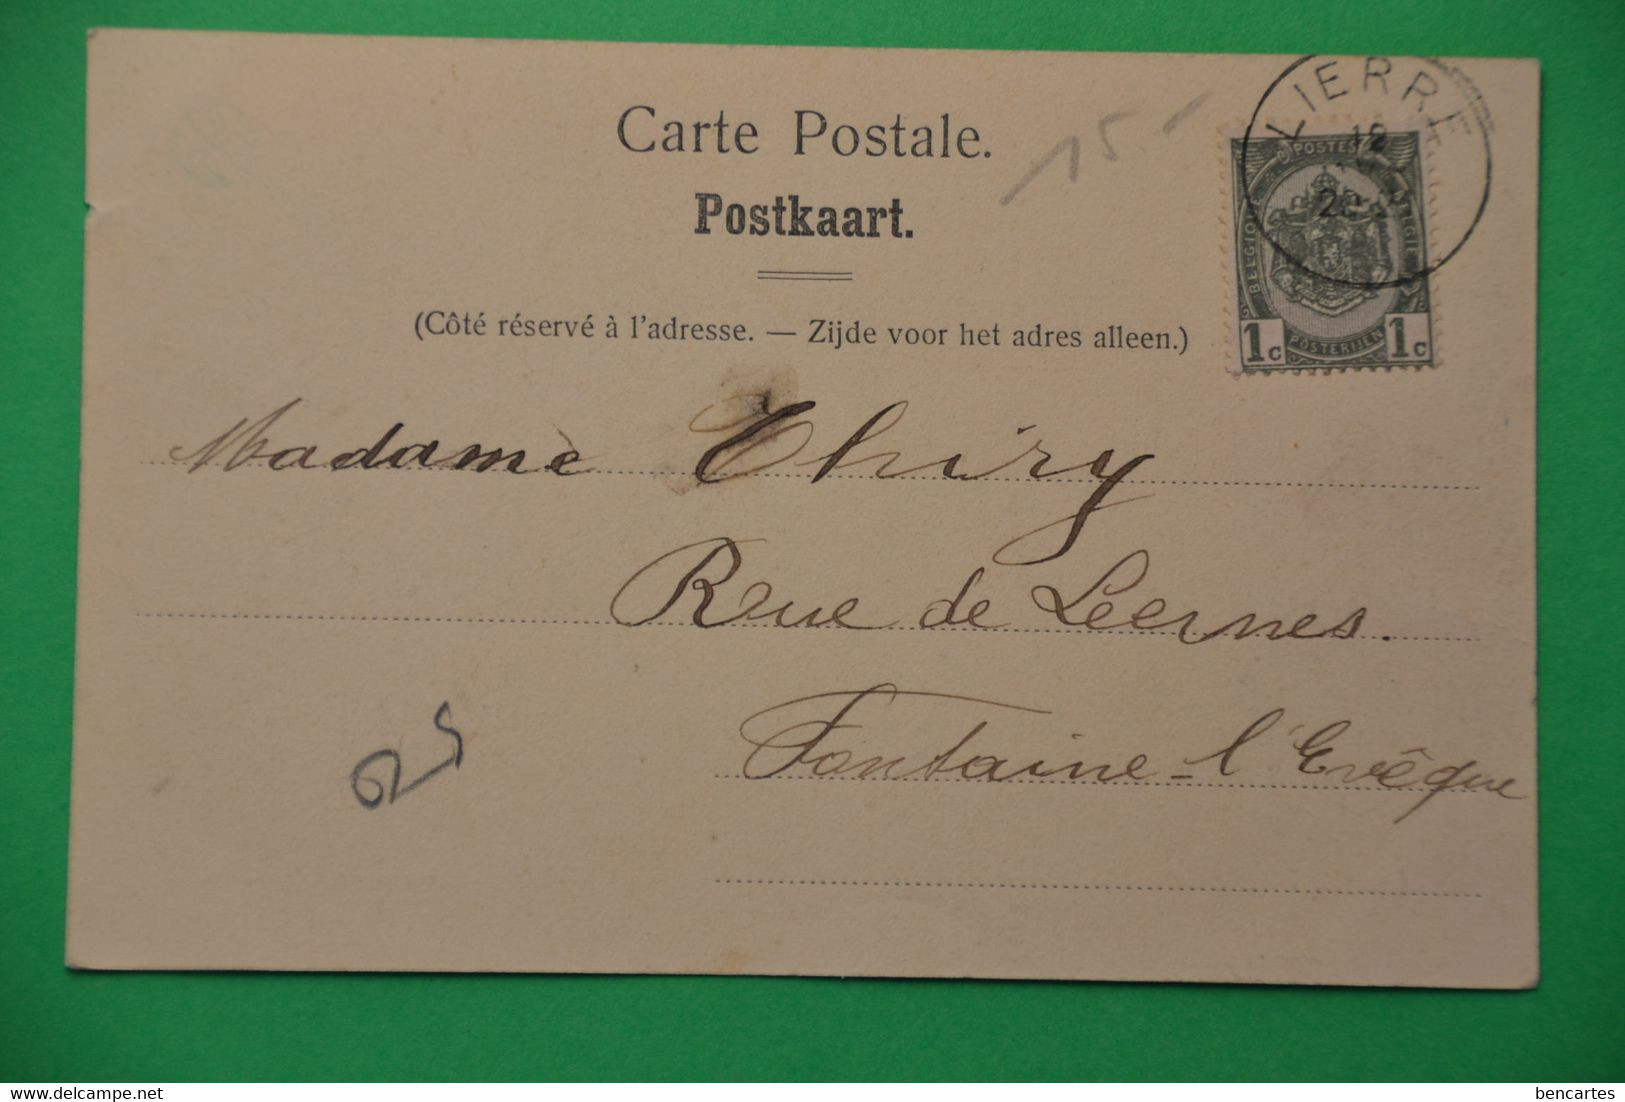 Carte Postale.
15.-
LIERRE
12
Postkaart.
POSTES
BELGIQUE
BELGIE
1c
POSTERIJEN
1c
(Côté réservé à l'adresse. — Zijde voor het adres alleen.)
Madame Thiry
Rue de Leernes.
Fontaine-l'Evêque
delcampe.net
bencartes